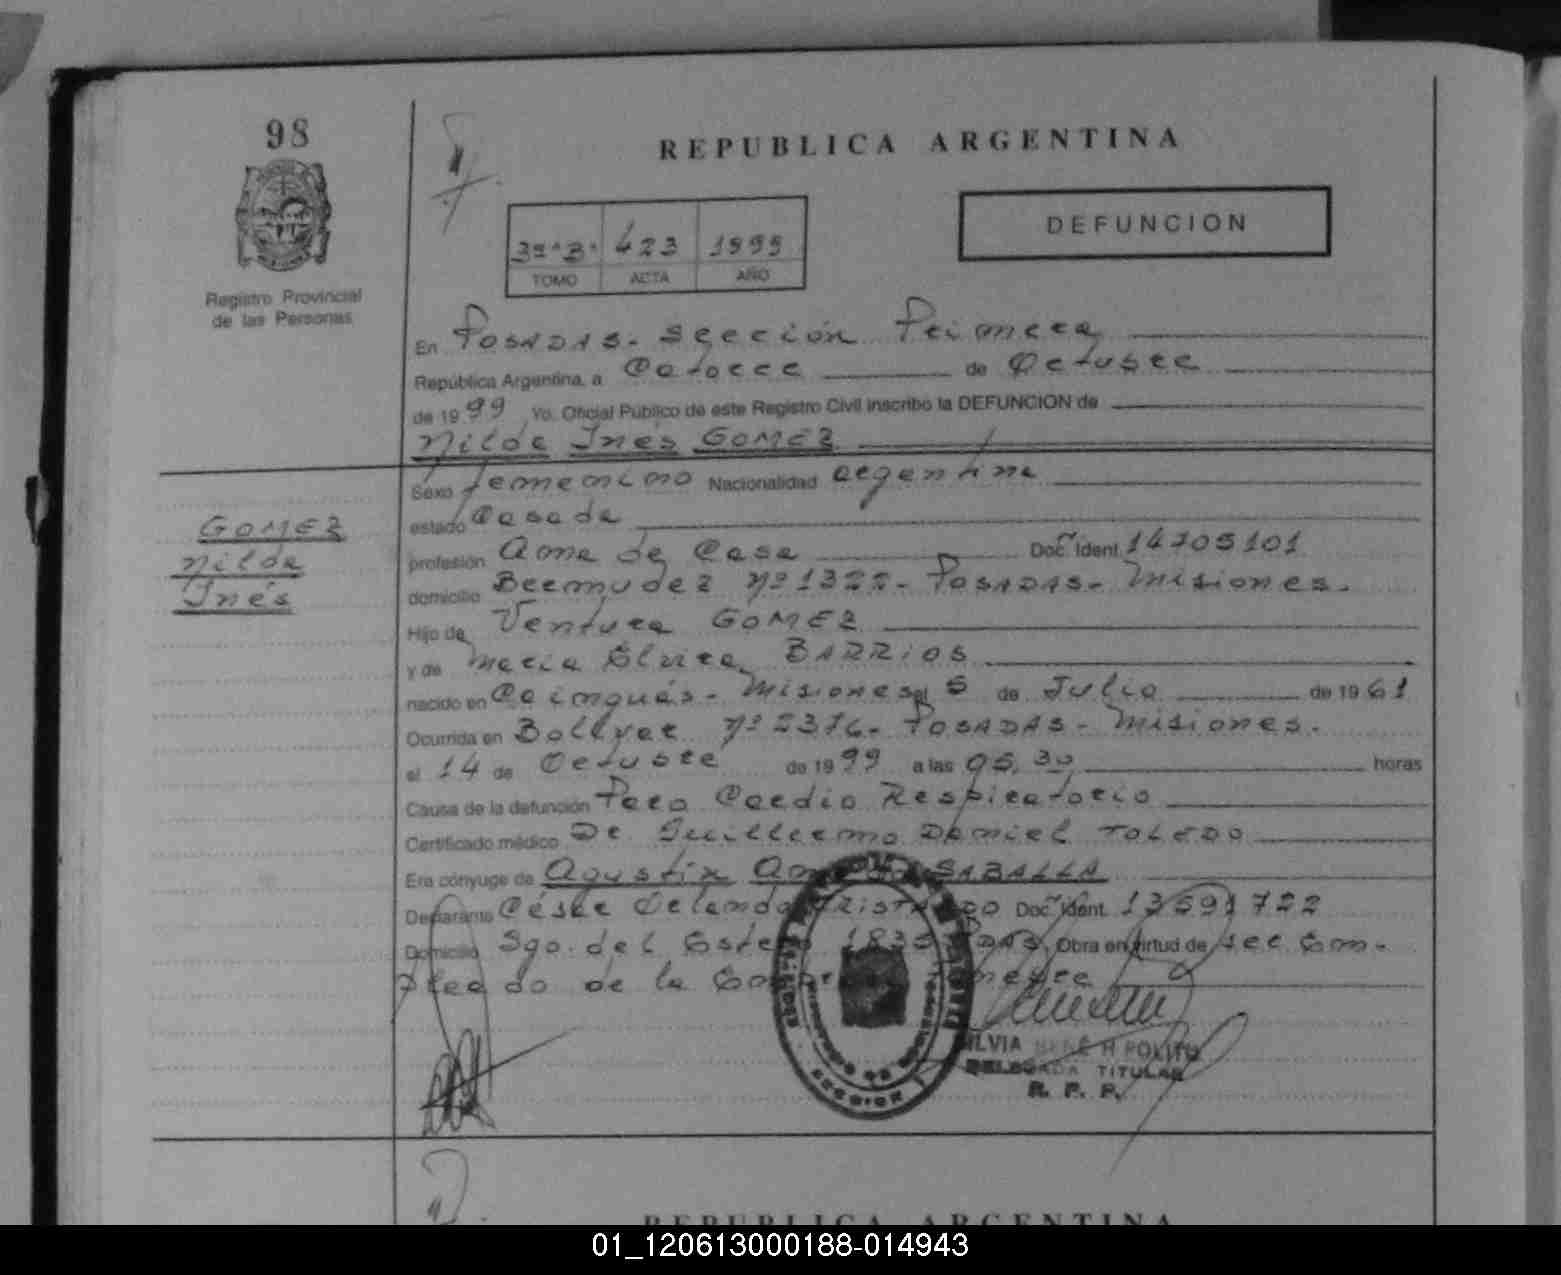 98
REPUBLICA ARGENTINA
DEFUNCION
3º "B" 423 1999
TOMO ACTA AÑO
Registro Provincial
de las Personas
En POSADAS - Sección Primera
República Argentina, a Catorce de Octubre
de 1999 Yo, Oficial Público de este Registro Civil inscribo la DEFUNCION de
Nilda Inés GOMEZ
Sexo femenino Nacionalidad argentina
estado Casada
GOMEZ
Nilda
Inés
profesión Ama de Casa Doc. Ident. 14705101
domicilio Bermudez Nº 1322 - POSADAS - Misiones.
Hijo de Ventura GOMEZ
y de Maria Elvira BARRIOS
nacido en Cainguás - Misiones el 5 de Julio de 1961
Ocurrida en Bolivar Nº 2376 - POSADAS - Misiones.
el 14 de Octubre de 1999 a las 05,30 horas
Causa de la defunción Paro Cardio Respiratorio
Certificado médico Dr Guillermo Daniel TOLEDO
Era cónyuge de Agustín SABALLA
Declarante César Orlando Doc. Ident. 13591722
Domicilio Sgo. del Estero 1835 Pdas, Obra en virtud de ser Em-
pleado de la
SILVIA RENE H POLITO
DELEGADA TITULAR
R. P. P.
REPUBLICA ARGENTINA
01_120613000188-014943